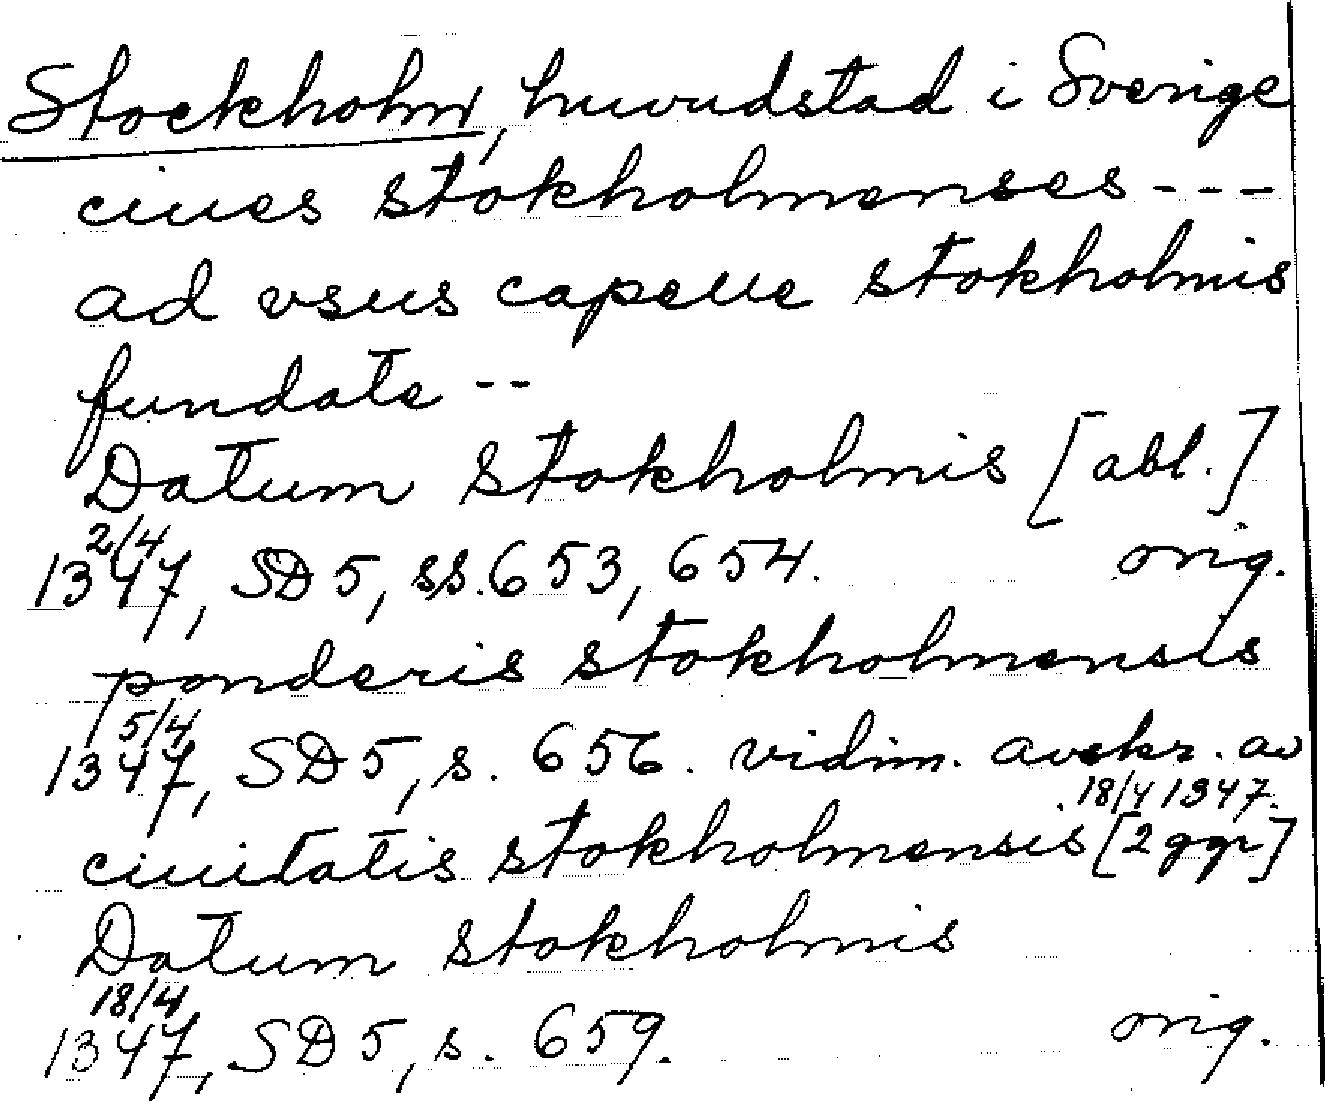 Stockholm, huvudstad i Sverige
ciues stokholmenses ---
ad vsus capelle stokholmis
fundate --
Datum stokholmis [abl.]
2/4
1347, SD 5, ss. 653, 654. orig.
ponderis stokholmensis
5/4
1347, SD 5, s. 656. vidim. avskr. av
18/4 1347.
ciuitatis stokholmensis [2 ggr]
Datum stokholmis
18/4
1347, SD 5, s. 659. orig.